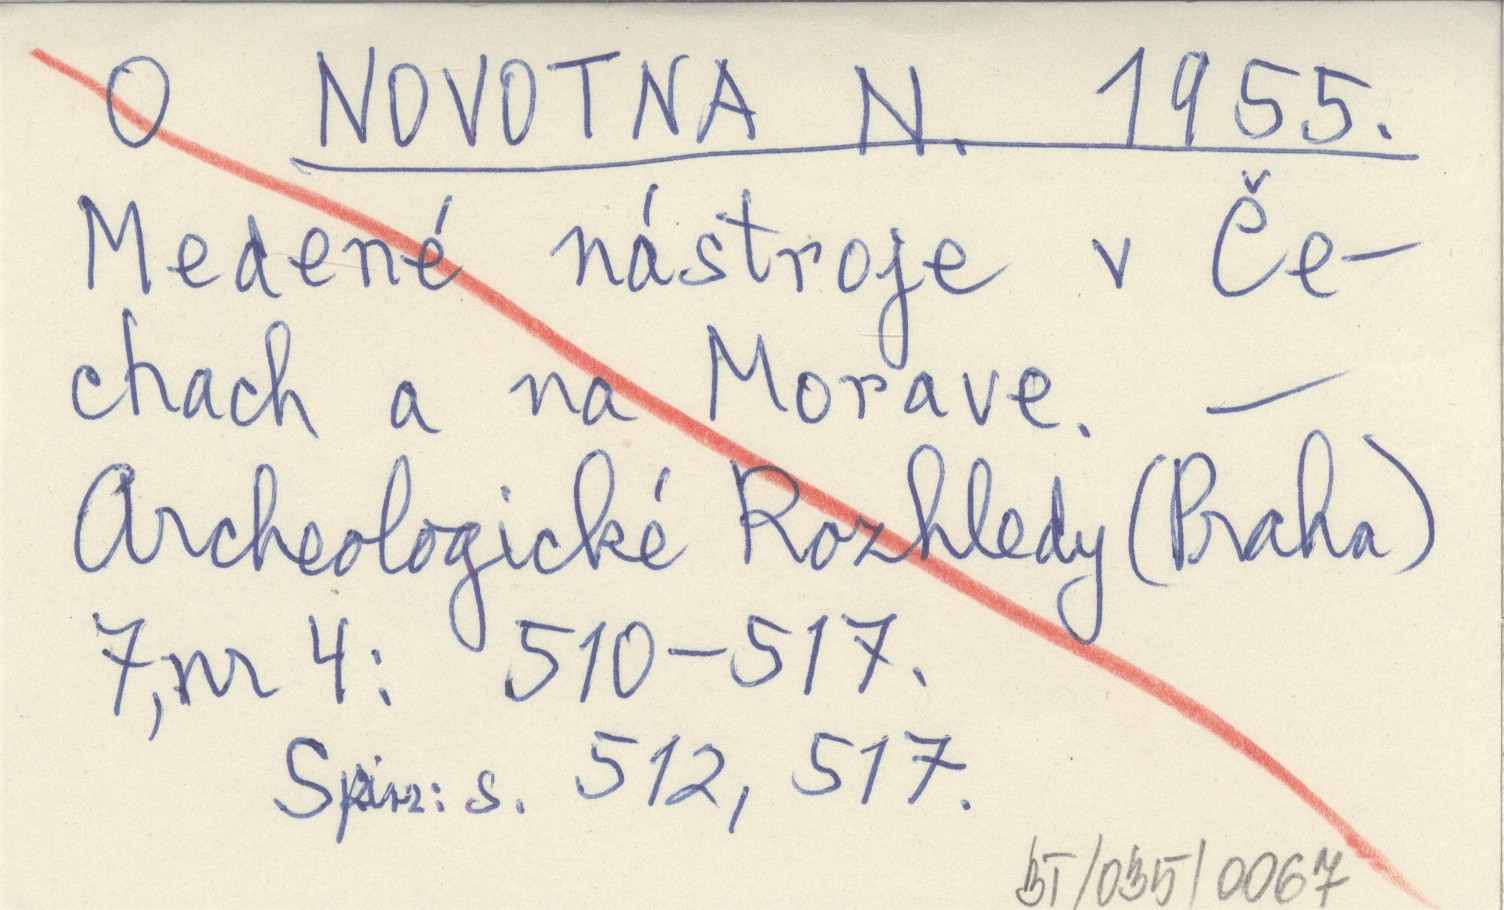 O NOVOTNA N. 1955.
Medené nástroje v Če-
chach a na Morave. —
Archeologické Rozhledy (Praha)
7, nr 4: 510-517.
s. 512, 517.
/035/0067